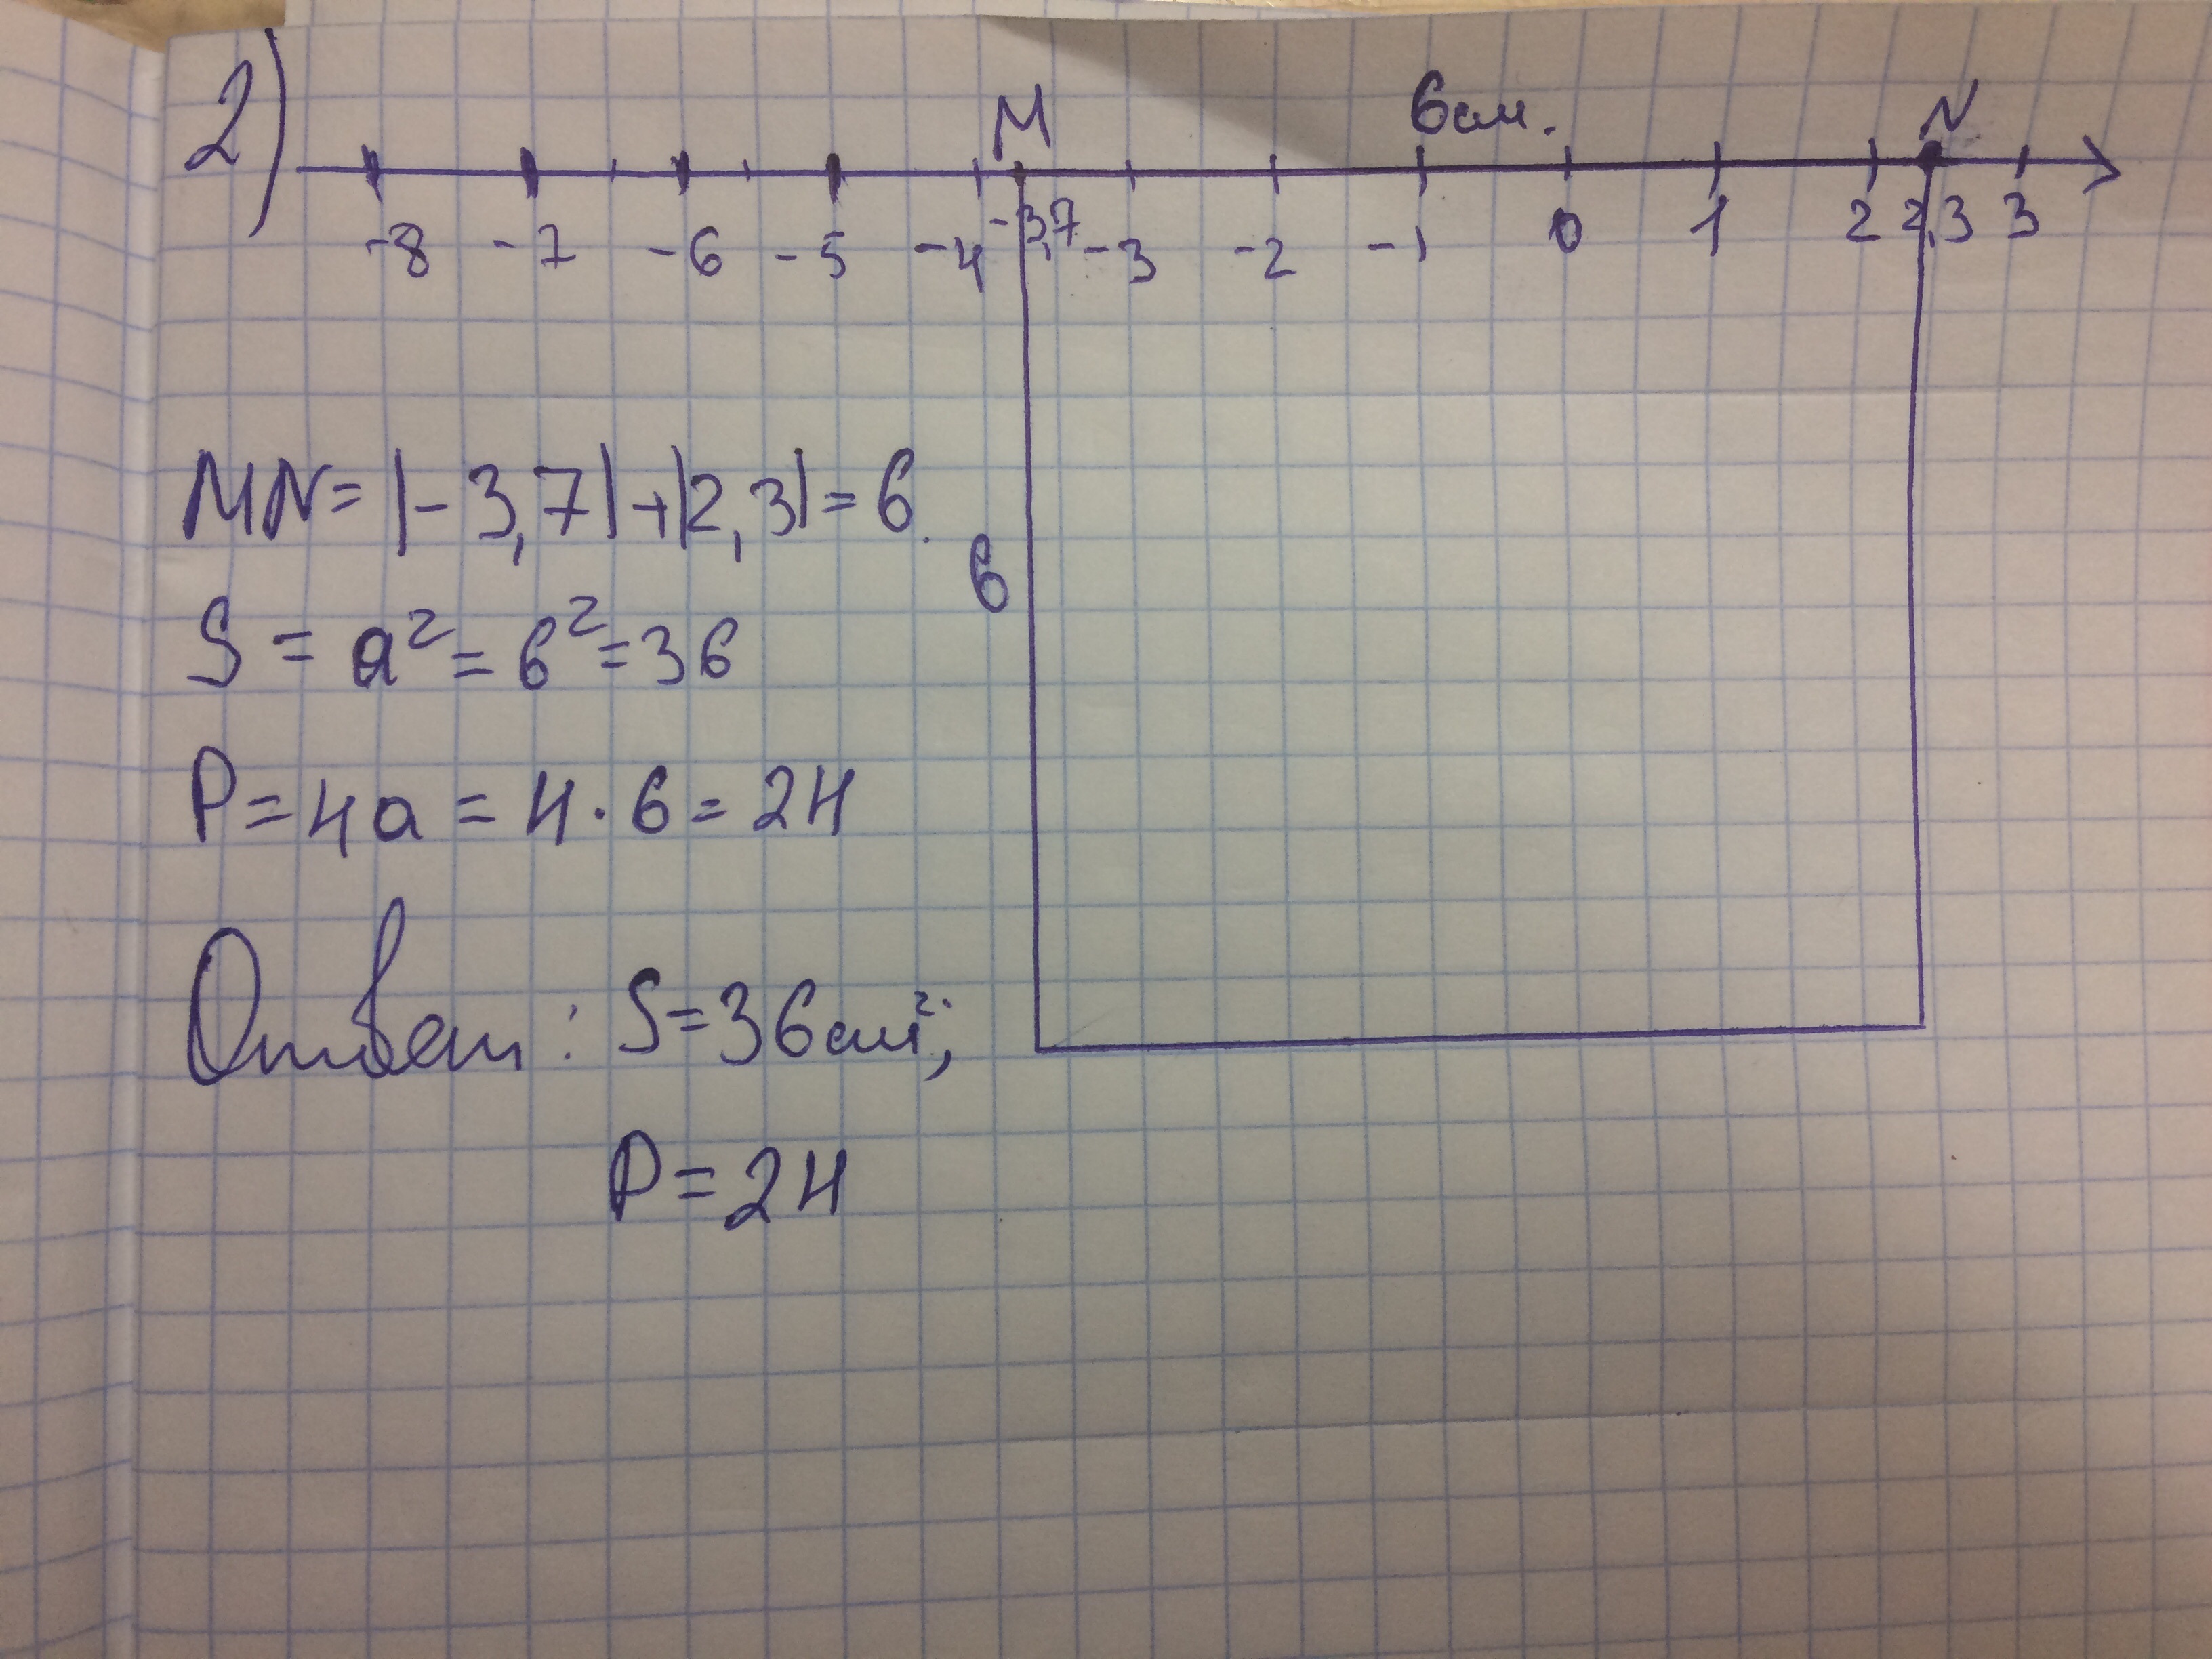 2)
M 6см. N
-8 -7 -6 -5 -4 -3,7 -3 -2 -1 0 1 2 2,3 3
MN= |-3,7|+|2,3|=6.
6
S = a²= 6²=36
P=4a = 4·6=24
Ответ: S=36см²;
P=24